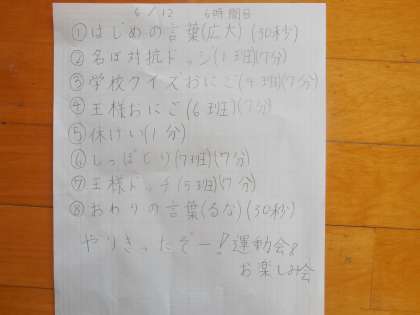 6/12 6時間目
①はじめの言葉(広大)(30秒)
②名は対抗ドッジ(1班)(7分)
③学校クイズおにご(4班)(7分)
④王様おにご(6班)(7分)
⑤休けい(1分)
⑥しっぽとり(7班)(7分)
⑦王様ドッチ(5班)(7分)
⑧おわりの言葉(るな)(30秒)
やりきったぞー!運動会&
お楽しみ会